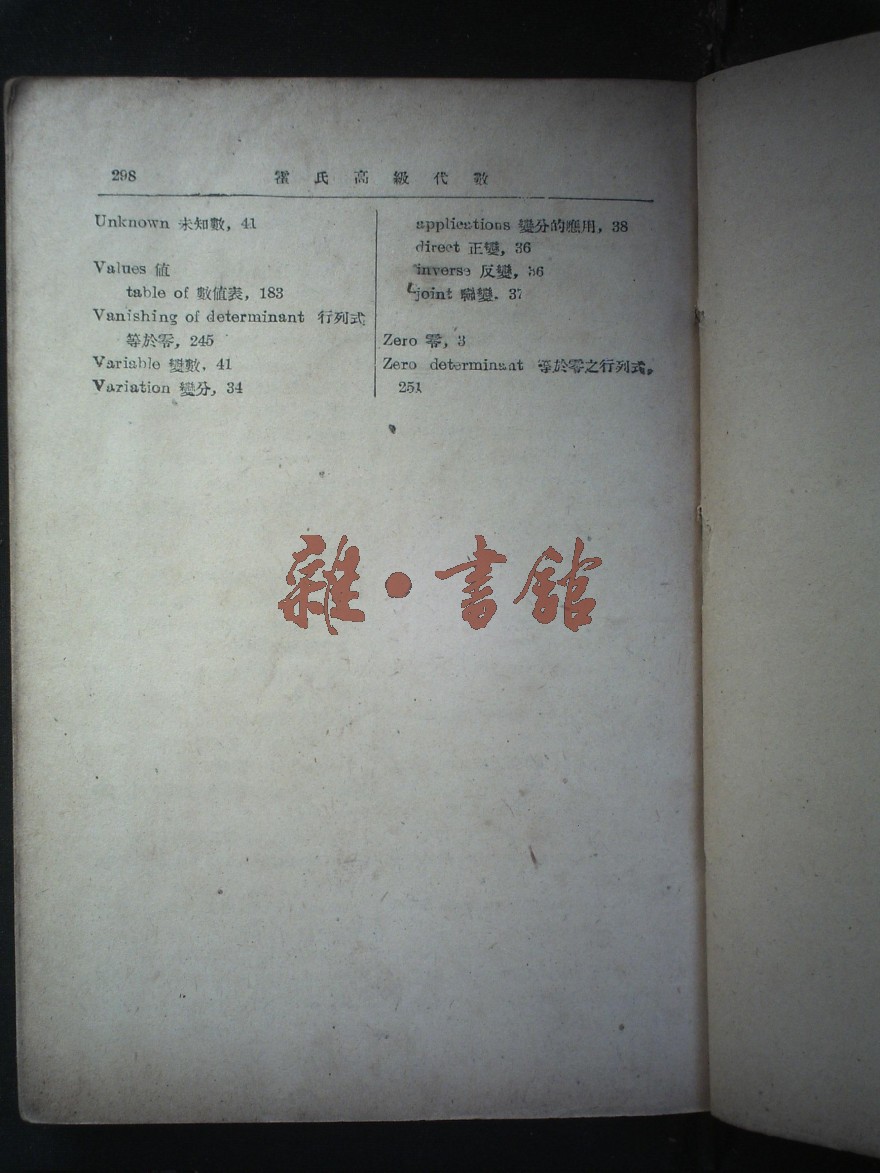 298 霍氏高級代數
Unknown 未知數, 41
Values 値
table of 數値表, 183
Vanishing of determinant 行列式
等於零, 245
Variable 變數, 41
Variation 變分, 34
applications 變分的應用, 38
direct 正變, 36
inverse 反變, 36
joint 聯變. 37
Zero 零, 3
Zero determinant 等於零之行列式,
251
雜·書館